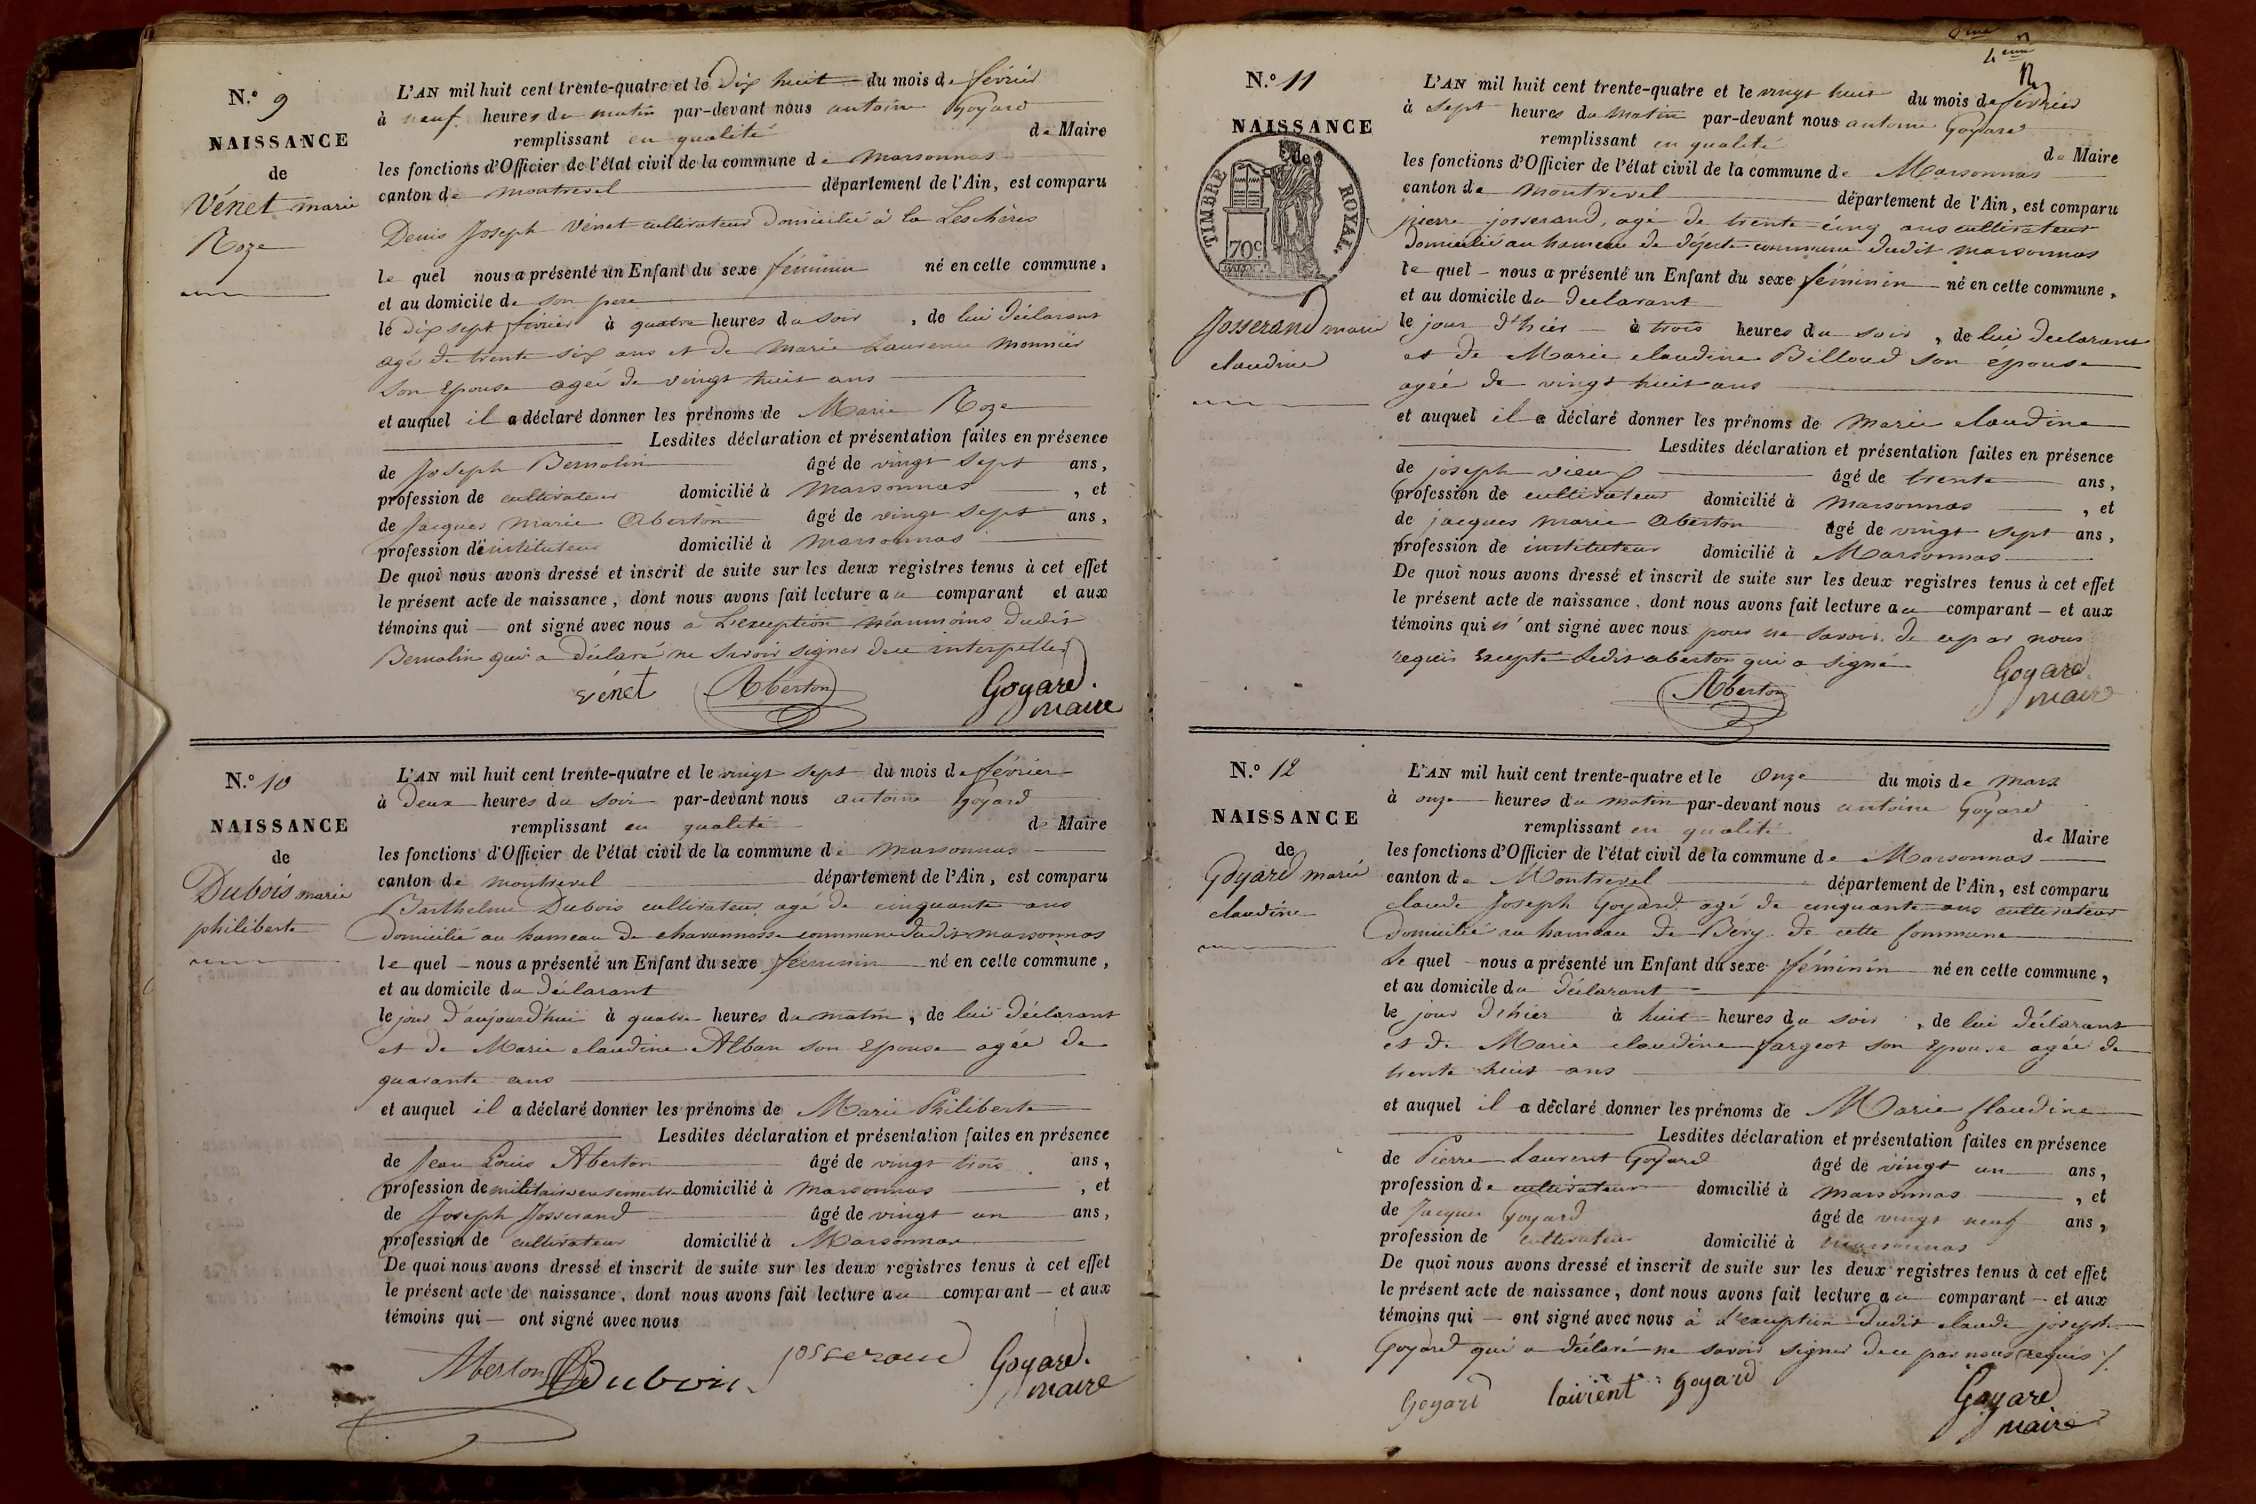 N.º 9
NAISSANCE
de
Vénet marie
Roze
L'AN mil huit cent trente-quatre et le dix huit du mois de février
à neuf heures du matin par-devant nous antoine Goyard
remplissant en qualité de Maire
les fonctions d'Officier de l'état civil de la commune de marsonnas
canton de montrevel département de l'Ain, est comparu
Denis Joseph Vénet cultivateur domicilié à la Leschères
le quel nous a présenté un Enfant du sexe féminin né en cette commune,
et au domicile de son pere
le dix sept février à quatre heures du soir, de lui déclarant
agé de trente six ans et de marie Laurence monnier
son Epouse ageé de vingt huit ans
et auquel il a déclaré donner les prénoms de Marie Roze
Lesdites déclaration et présentation faites en présence
de Joseph Bernolin âgé de vingt sept ans,
profession de cultivateur domicilié à marsonnas, et
de Jacques marie Aberton âgé de vingt sept ans,
profession d'instituteur domicilié à marsonnas
De quoi nous avons dressé et inscrit de suite sur les deux registres tenus à cet effet
le présent acte de naissance, dont nous avons fait lecture au comparant et aux
témoins qui ont signé avec nous à L'exception néanmoins dudit
Bernolin qui a déclaré ne savoir signer de ce interpellé
vénet Aberton Goyard
maire
N.º 10
NAISSANCE
de
Dubois marie
philiberte
L'AN mil huit cent trente-quatre et le vingt sept du mois de février
à deux heures du soir par-devant nous antoine Goyard
remplissant en qualité de Maire
les fonctions d'Officier de l'état civil de la commune de marsonnas
canton de montrevel département de l'Ain, est comparu
Barthelmi Dubois cultivateur age de cinquante ans
domicilié au hameau de charannasse commune dudit marsonnas
le quel nous a présenté un Enfant du sexe féminin né en cette commune,
et au domicile du déclarant
le jour d'aujourd'hui à quatre heures du matin, de lui déclarant
et de Marie claudine Alban son Epouse agée de
quarante ans
et auquel il a déclaré donner les prénoms de Marie Philiberte
Lesdites déclaration et présentation faites en présence
de Jean Louis Aberton âgé de vingt trois ans,
profession de militaire en semestre domicilié à marsonnas, et
de Joseph Josserand âgé de vingt un ans,
profession de cultivateur domicilié à Marsonnas
De quoi nous avons dressé et inscrit de suite sur les deux registres tenus à cet effet
le présent acte de naissance, dont nous avons fait lecture au comparant et aux
témoins qui ont signé avec nous
Aberton Dubois josserand Goyard
maire
4eme
12
N.º 11
NAISSANCE
de
TIMBRE ROYAL
70c
Josserand marie
claudine
L'AN mil huit cent trente-quatre et le vingt huit du mois de février
à sept heures du matin par-devant nous antoine Goyard
remplissant en qualité de Maire
les fonctions d'Officier de l'état civil de la commune de Marsonnas
canton de montrevel département de l'Ain, est comparu
pierre josserand, agé de trente cinq ans cultivateur
domicilié au hameau de commune dudit marsonnas
le quel nous a présenté un Enfant du sexe féminin né en cette commune,
et au domicile du declarant
le jour d'hier à trois heures du soir, de lui declarant
et de Marie claudine Billoud son épouse
agée de vingt huit ans
et auquel il a déclaré donner les prénoms de marie claudine
Lesdites déclaration et présentation faites en présence
de joseph vieux âgé de trente ans,
profession de cultivateur domicilié à marsonnas, et
de jacques marie Aberton âgé de vingt sept ans,
profession de instituteur domicilié à Marsonnas
De quoi nous avons dressé et inscrit de suite sur les deux registres tenus à cet effet
le présent acte de naissance, dont nous avons fait lecture au comparant et aux
témoins qui n'ont signé avec nous pour ne savoir de ce par nous
requis Excepté ledit aberton qui a signé
Aberton Goyard
maire
N.º 12
NAISSANCE
de
Goyard marie
claudine
L'AN mil huit cent trente-quatre et le onze du mois de mars
à onze heures du matin par-devant nous antoine Goyard
remplissant en qualité de Maire
les fonctions d'Officier de l'état civil de la commune de Marsonnas
canton de Montrevel département de l'Ain, est comparu
claude Joseph Goyard agé de cinquante ans cultivateur
domicilié au hameau de Béry de cette commune
Le quel nous a présenté un Enfant du sexe féminin né en cette commune,
et au domicile du déclarant
le jour d'hier à huit heures du soir, de lui déclarant
et de Marie claudine fargeot son Epouse agée de
trente huit ans
et auquel il a déclaré donner les prénoms de Marie Claudine
Lesdites déclaration et présentation faites en présence
de Pierre Laurent Goyard âgé de vingt un ans,
profession de cultivateur domicilié à marsonnas, et
de Jacques Goyard âgé de vingt neuf ans,
profession de cultivateur domicilié à marsonnas
De quoi nous avons dressé et inscrit de suite sur les deux registres tenus à cet effet
le présent acte de naissance, dont nous avons fait lecture au comparant et aux
témoins qui ont signé avec nous à L'exception dudit claude joseph
Goyard qui a déclaré ne savoir signer de ce par nous requis
Goyard laurent goyard Goyard
maire